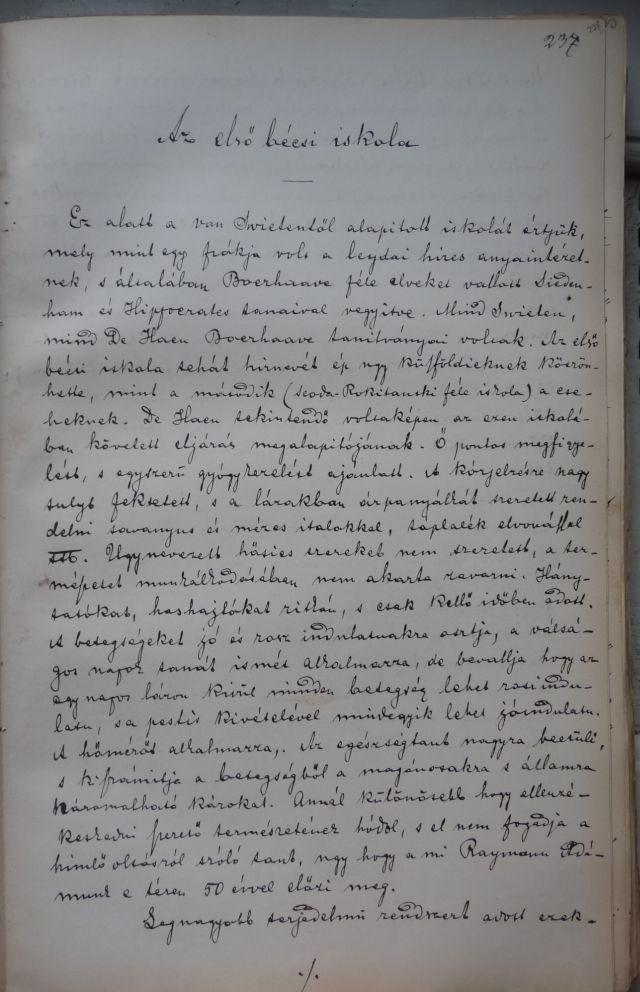 237
Az első bécsi iskola
Ez alatt a van Swietentől alapitott iskolát értjük,
mely mint egy fiókja volt a leydai hires anyaintézet-
nek, s általában Boerhaave féle elveket vallott Siden-
ham és Hippocrates tanaival vegyitve. Mind Swieten,
mind De Haen Boerhaave tanitványai voltak. Az első
bécsi iskola tehát hirnevét ép ugy külföldieknek köszön-
hette, mint a második (Scoda-Rokitanski féle iskola) a cse-
heknek. De Haen tekintendő voltaképen az ezen iskolá-
ban követett eljárás megalapitójának. Ő pontos megfigye-
lést, s egyszerű gyógykezelést ajánlott. A kórjelzésre nagy
sulyt fektetett, s a lázakban árpanyálkát szeretett ren-
delni savanyus és mézes italokkal, táplálék elvonással
stb. Ugynevezett hősies szereket nem szeretett, a ter-
mészetet munkálkodásában nem akarta zavarni. Hány-
tatókat, hashajtókat ritkán, s csak kellő időben adott.
A betegségeket jó és rosz indulatuakra osztja, a válsá-
gos napok tanát ismét alkalmazza, de bevallja hogy az
egy napos lázon kivül minden betegség lehet roszindu-
latu, s a pestis kivételével mindegyik lehet jóindulatu.
A hőmérőt alkalmazza,. Az egészségtant nagyra becsüli,
s kiszámitja a betegségből a magánosakra s államra
háramolható károkat. Annál különösebb hogy ellenzé-
keskedni szerető természetének hódol, s el nem fogadja a
himlőoltásról szóló tant, ugy hogy a mi Raymann Ádá-
munk e téren 50 évvel előzi meg.
Legnagyobb terjedelmü rendszert adott ezek-
./.